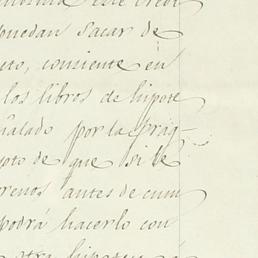 este credi
puedan sacar de
eto, consiente en
los libros de hipote
ñalado por la prag-
oto de que si le
renos antes de cum
podrá hacerlo con
otra hipoteca á